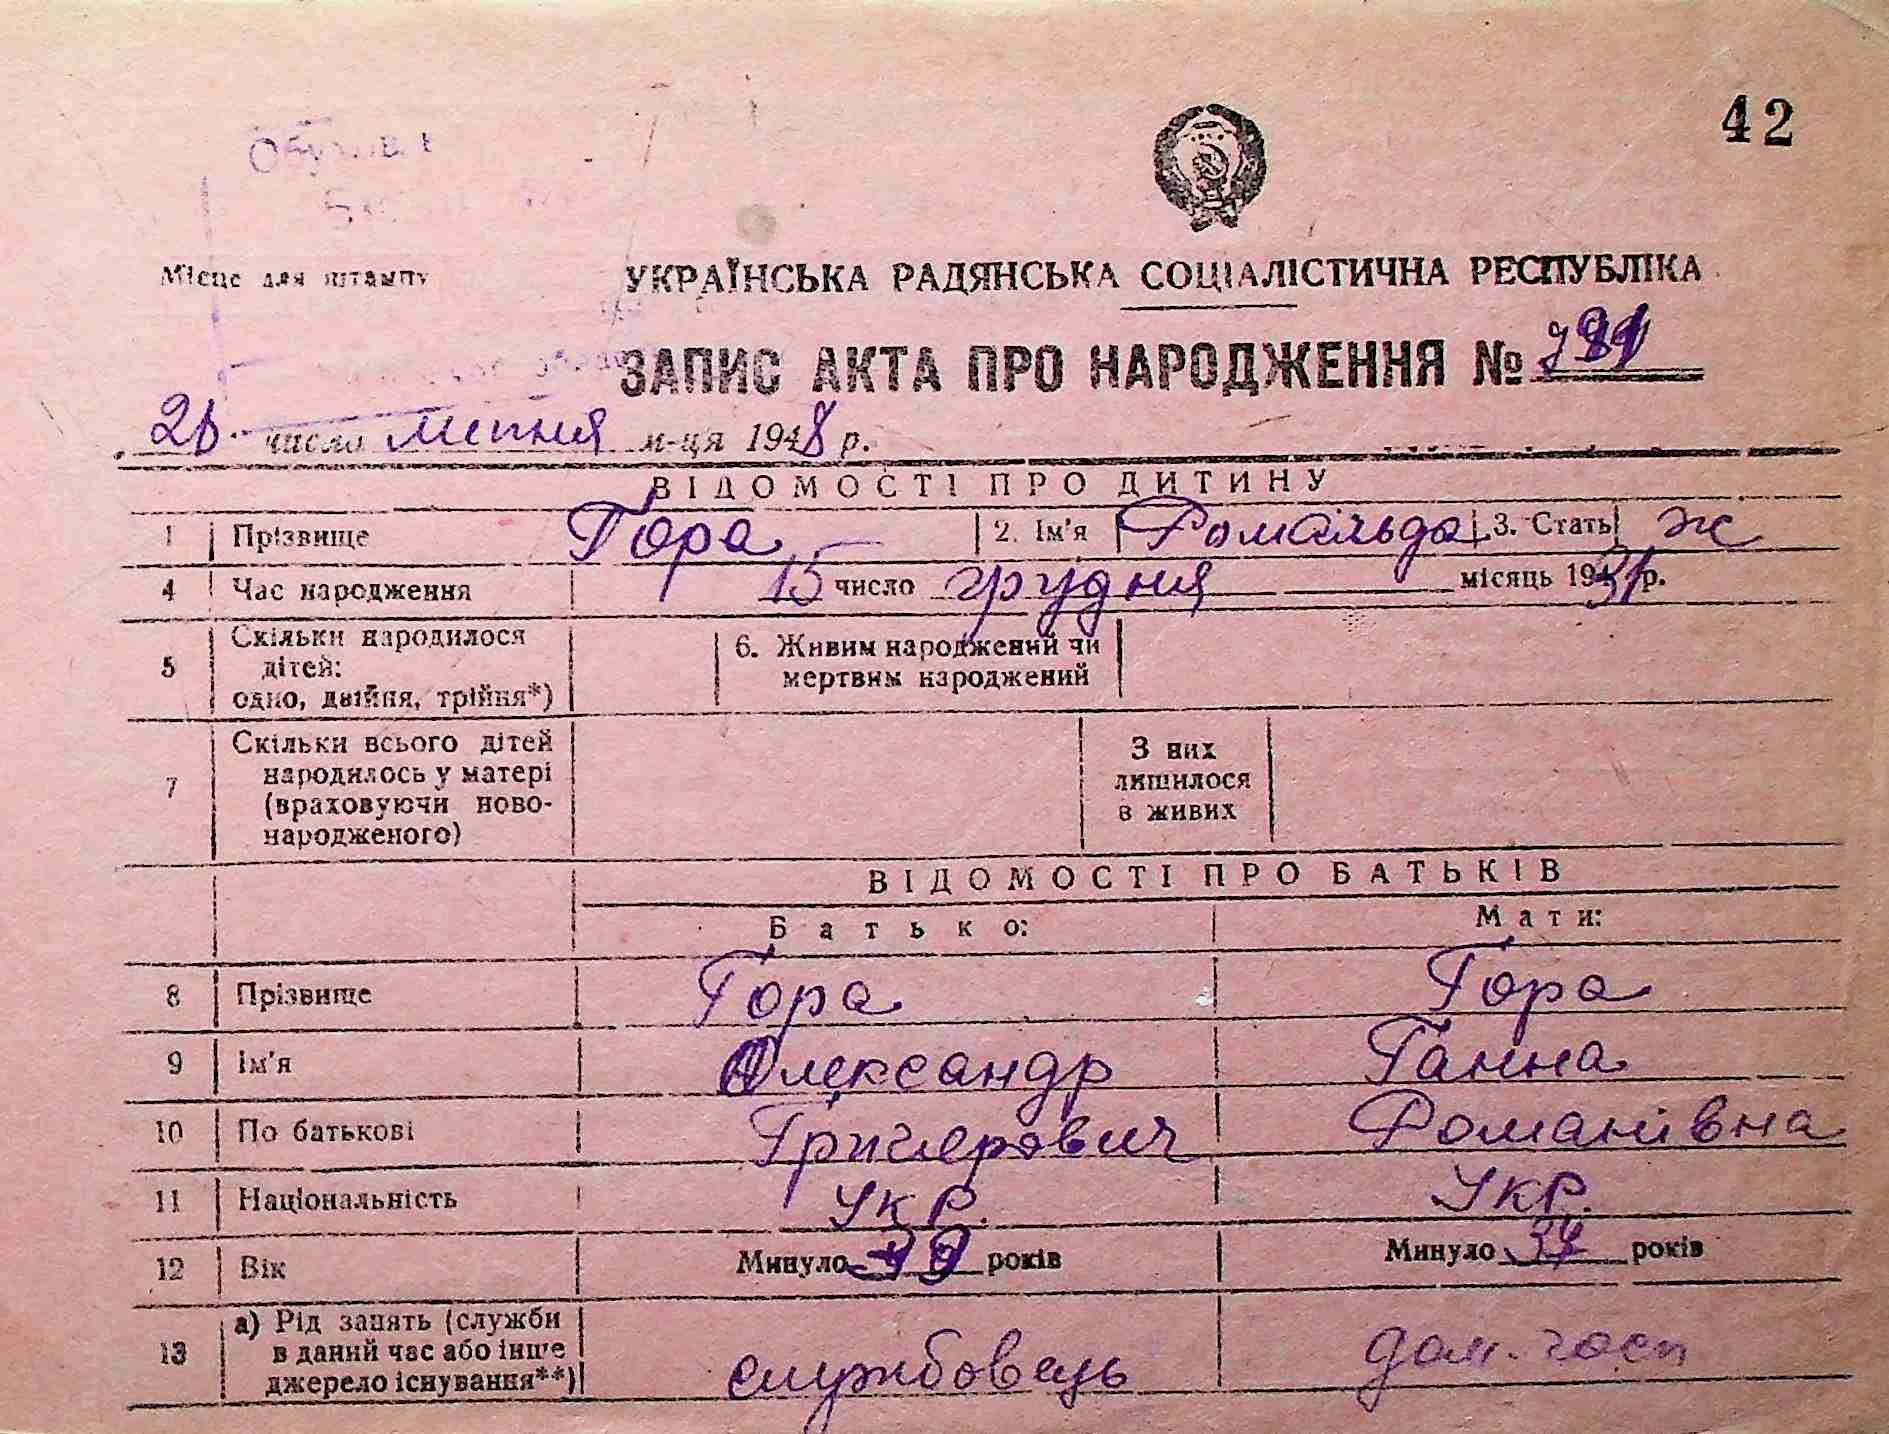 42
Місце для штампу
УКРАЇНСЬКА РАДЯНСЬКА СОЦІАЛІСТИЧНА РЕСПУБЛІКА
ЗАПИС АКТА ПРО НАРОДЖЕННЯ №
число липня м-ця 1948 р.
ВІДОМОСТІ ПРО ДИТИНУ
1 Прізвище Гора 2. Ім'я Ромальда 3. Стать ж
4 Час народження 15 число грудня місяць 1931 р.
5 Скільки народилося дітей: одно, двійня, трійня*) 6. Живим народжений чи мертвим народжений
7 Скільки всього дітей народилось у матері (враховуючи новонародженого) З них лишилося в живих
ВІДОМОСТІ ПРО БАТЬКІВ
Батько: Мати:
8 Прізвище Гора Гора
9 Ім'я Олександр Ганна
10 По батькові Григорович Романівна
11 Національність Укр. Укр.
12 Вік Минуло 39 років Минуло 34 років
13 а) Рід занять (служби в даний час або інше джерело існування**) службовець дом. госп